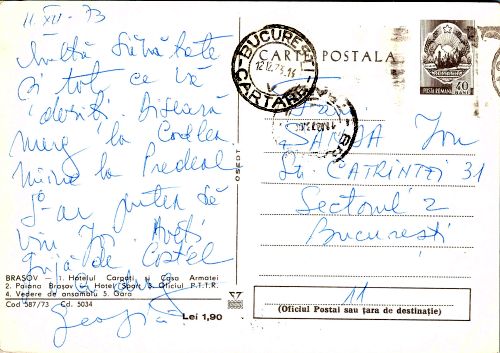 11.XII-73
Multă sănătate
și tot ce vă
doriți. Diseară
merg la Codlea
mîine la Predeal
S-ar putea să
vin Aveți
grijă de Costel
BRAȘOV — 1. Hotelul Carpați și Casa Armatei
2. Poiana Brașov 3. Hotel Sport 3. Oficiul P.T.T.R.
4. Vedere de ansamblu 5. Gara
Cod 587/73 Cd. 5034
Lei 1,90
CARTE POSTALA
BUCUREȘTI
12.12.73.
CARTARE
POSTA ROMANA 40
OSEDT
SANDA Ion
Str. CATRINȚEI 31
Sectorul 2
București
11
(Oficiul Postal sau țara de destinație)